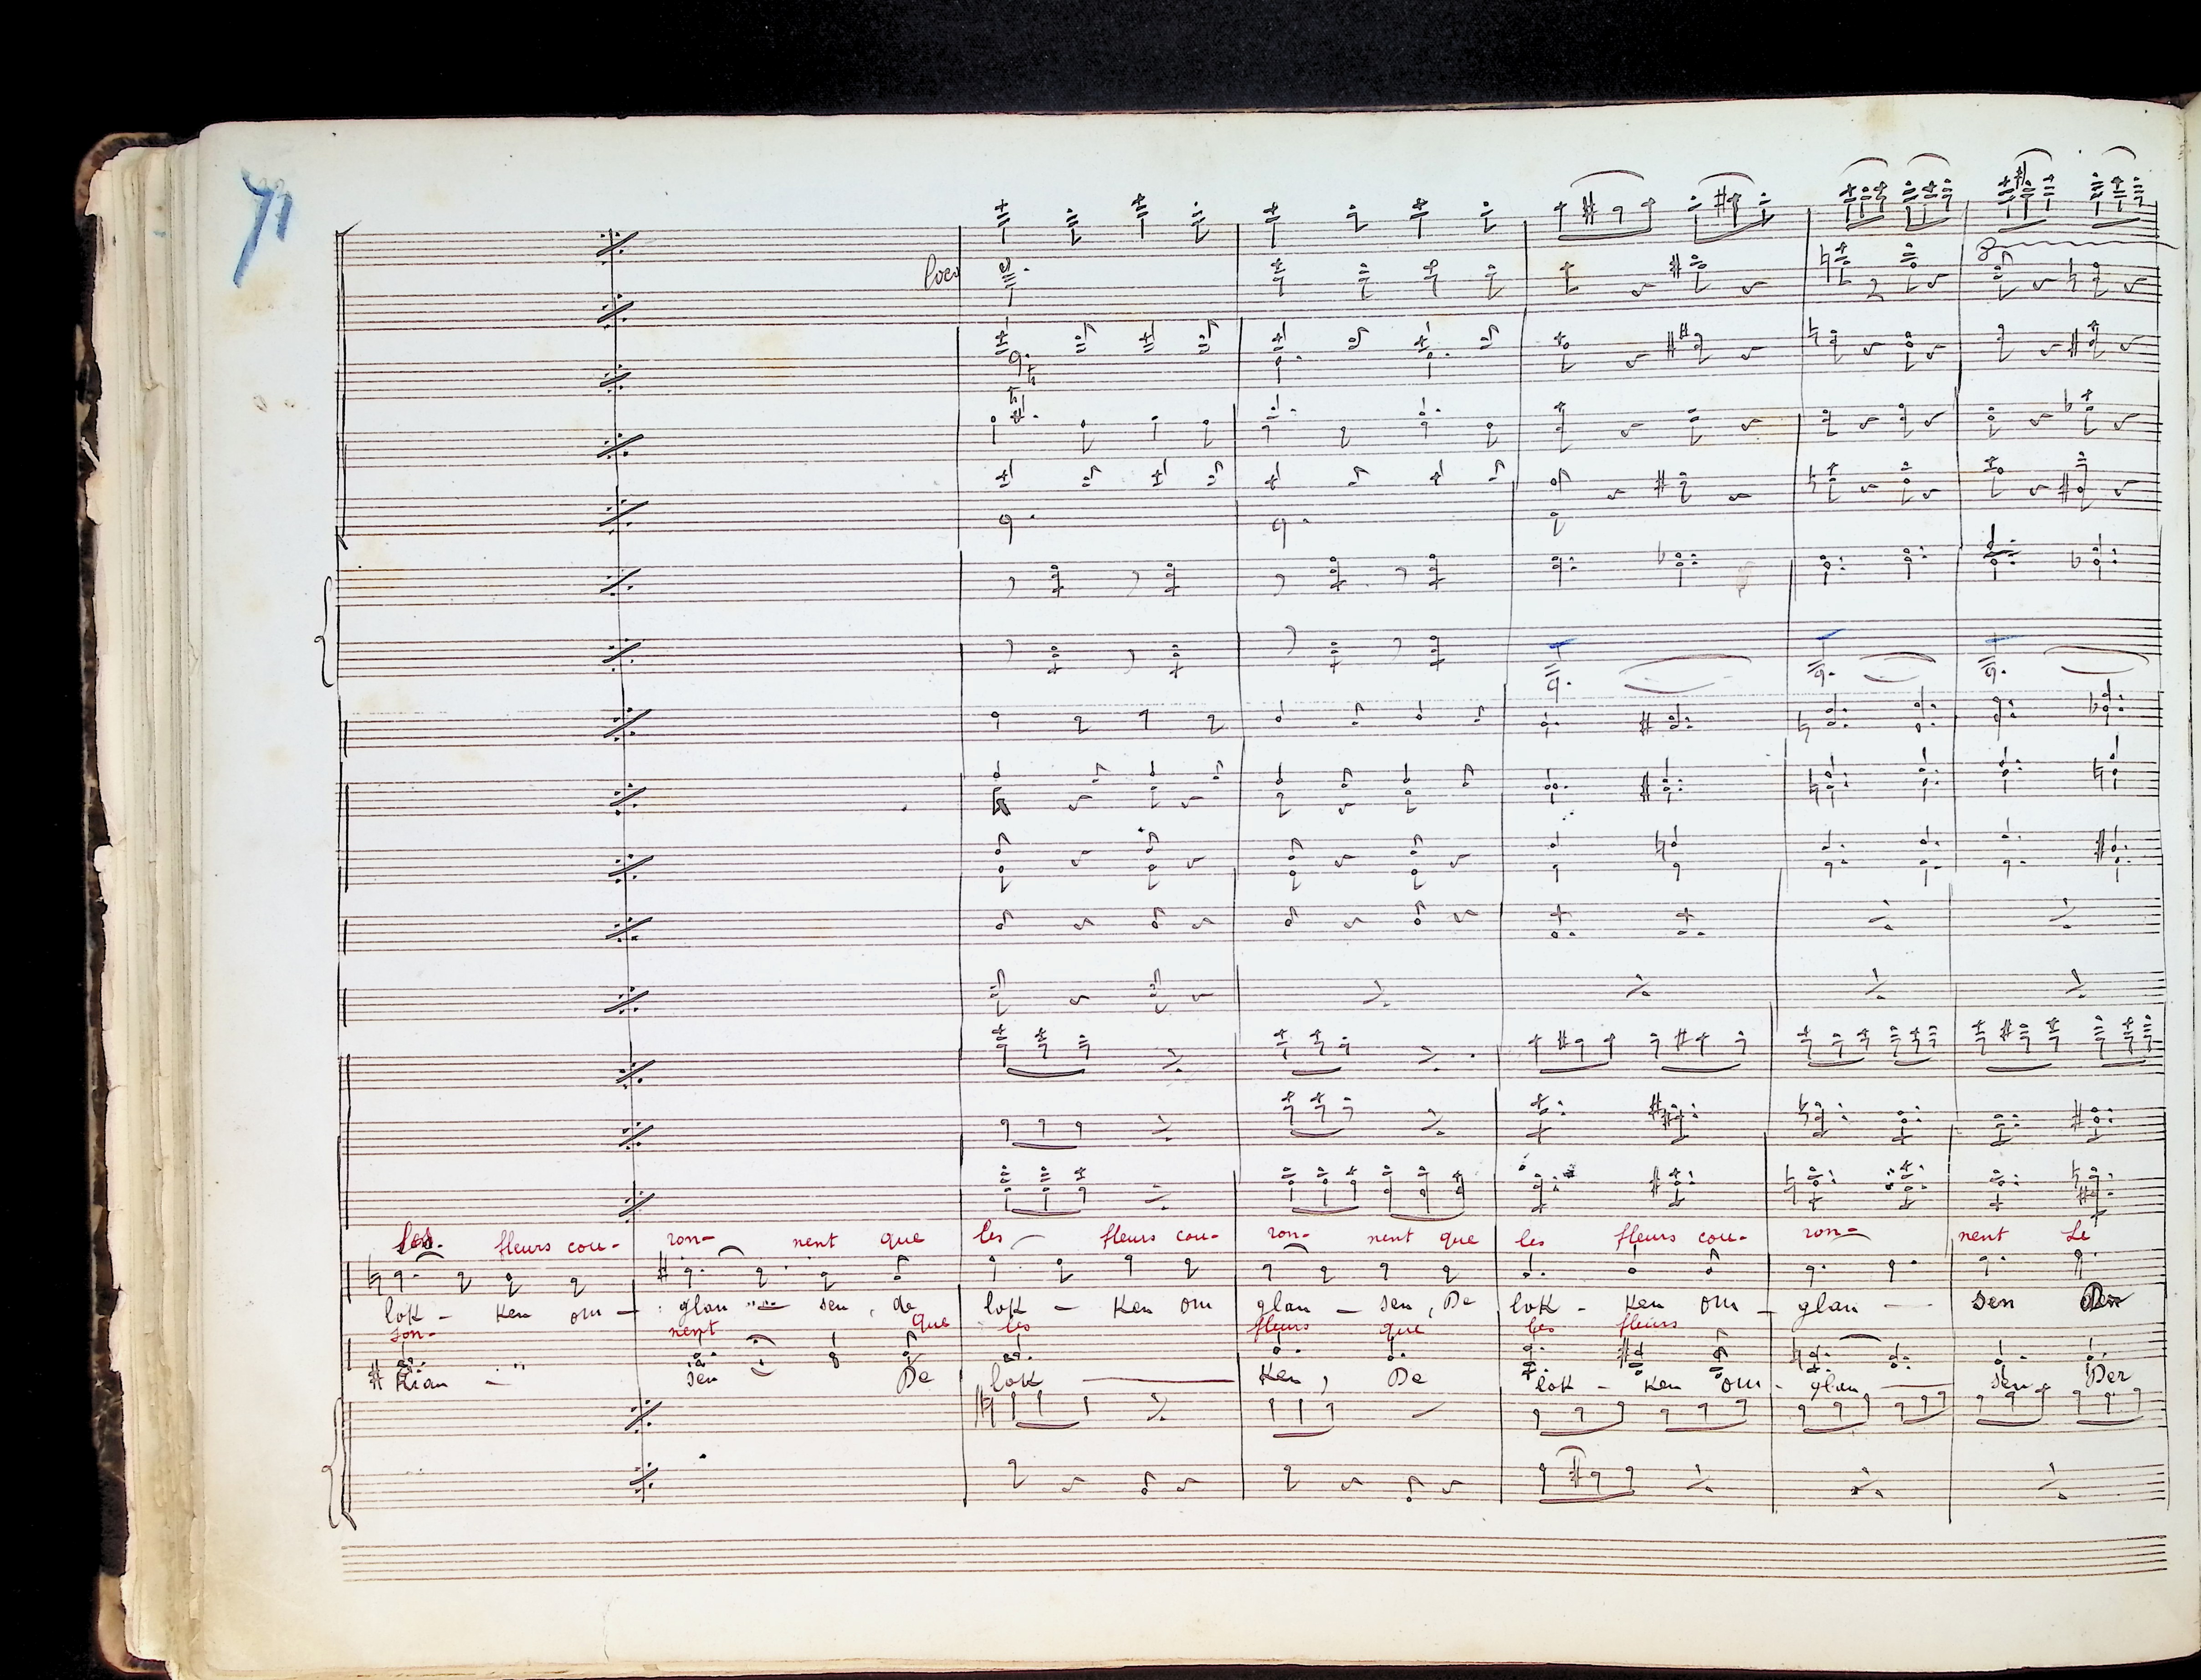 71
loco
8
les. fleurs cou- ron- nent que les fleurs cou- ron- nent que les fleurs cou- ron- nent Le
lok - ken om - glan - sen, de lok - ken om glan - sen, De lok - ken om - glan - sen Den
son- nent que les fleurs que les fleurs
sen De lok ken, De lok - ken om - glan sen Der